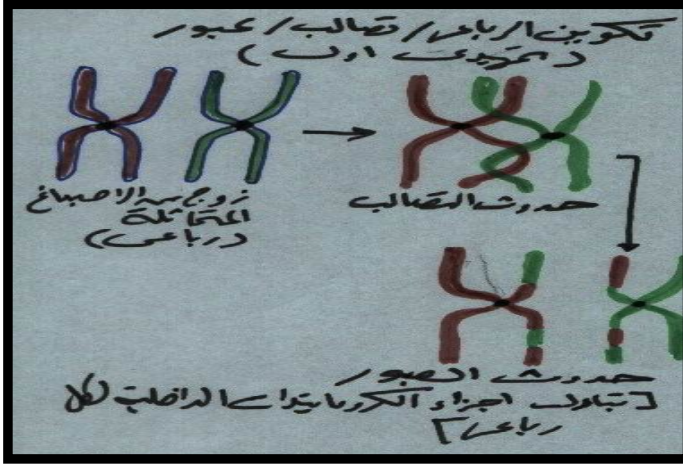 تكوين الرباعي / تصالب / عبور
(التمهيدي اول)
زوج من الاصباغ
المتماثلة
(رباعي)
حدوث التصالب
حدوث العبور
[تبادل اجزاء الكروماتيدات الداخلية لكل
رباعي]